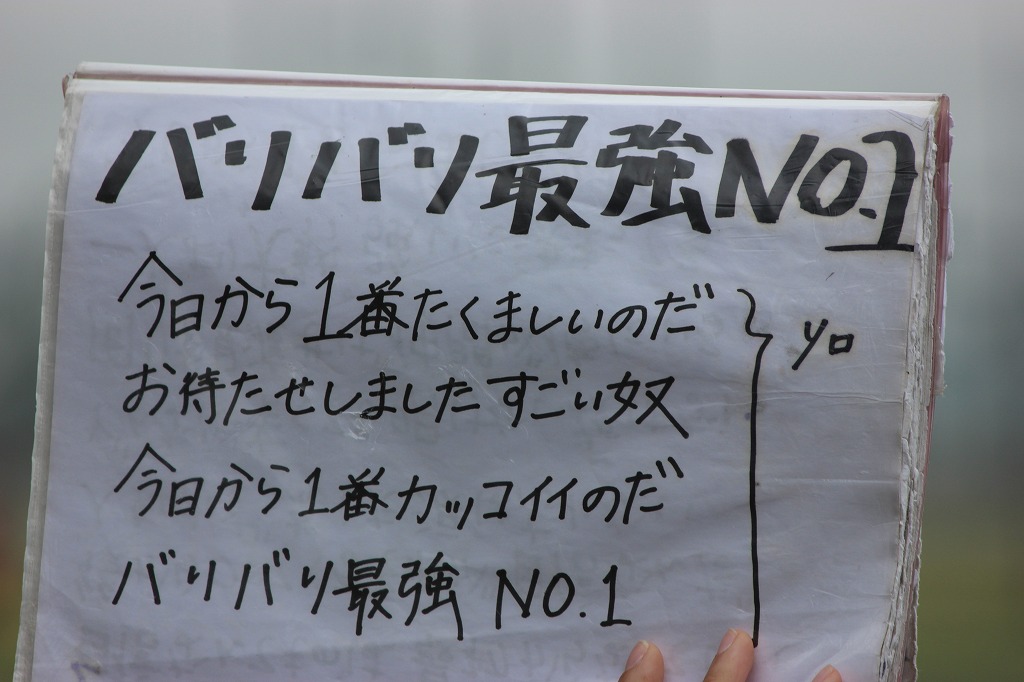 バリバリ最強NO.1
今日から1番たくましいのだ
お待たせしましたすごい奴
今日から1番カッコイイのだ
バリバリ最強 NO.1
yo